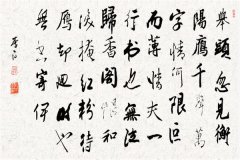 舉頭忽見衡
陽鴈千聲萬
字情何限叵
耐薄情夫一
行書也無泣
歸香閣恨和
淚掩紅粉待
雁却迴時也
無書寄伊